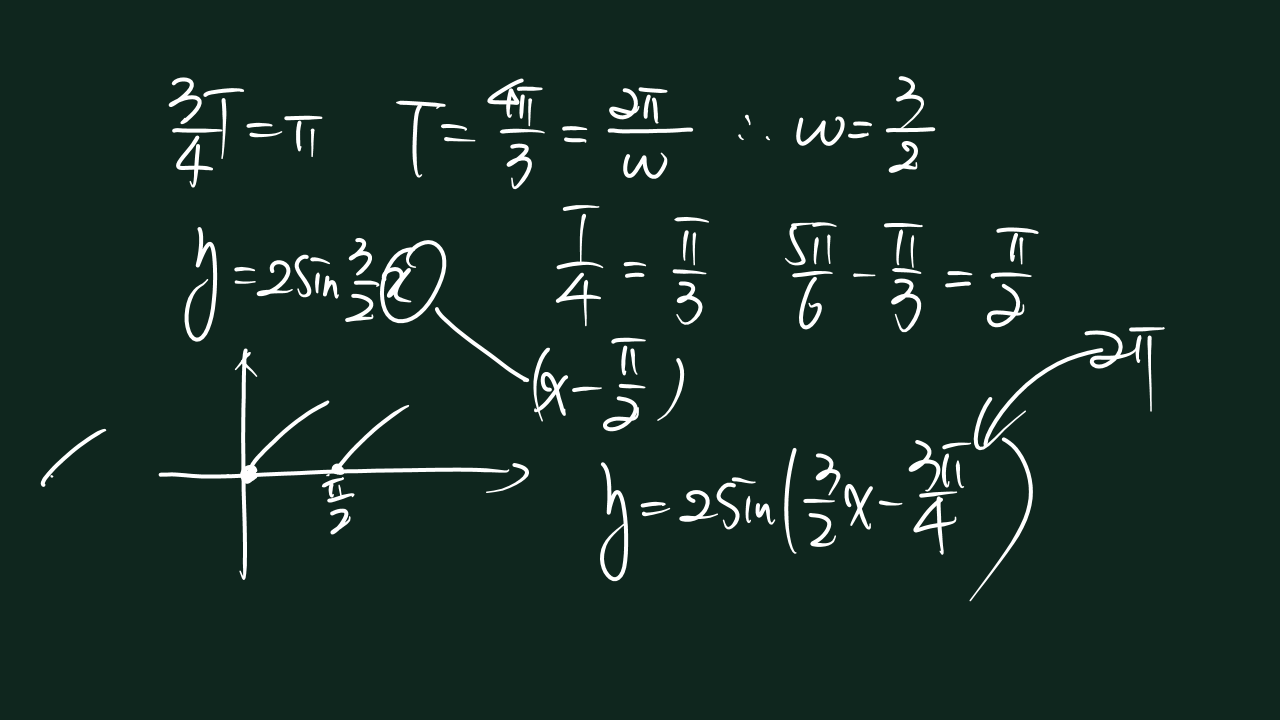 3/4 T = π   T = 4π/3 = 2π/w ∴ w = 3/2
y = 2sin 3/2 x   T/4 = π/3   5π/6 - π/3 = π/2
(x - π/2)
2π
π/2
y = 2sin(3/2 x - 3π/4)